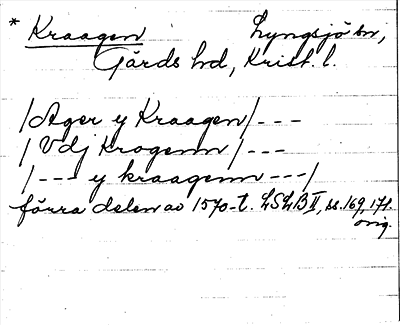 * Kraagen Lyngsjö sn,
Gärds hd, Krist. l.
/Ager y Kraagen/ ---
/Vdj Krogenn/ ---
/--- y kraagenn ---/
förra delen av 1570-t. LSLB II, ss. 169, 171.
orig.